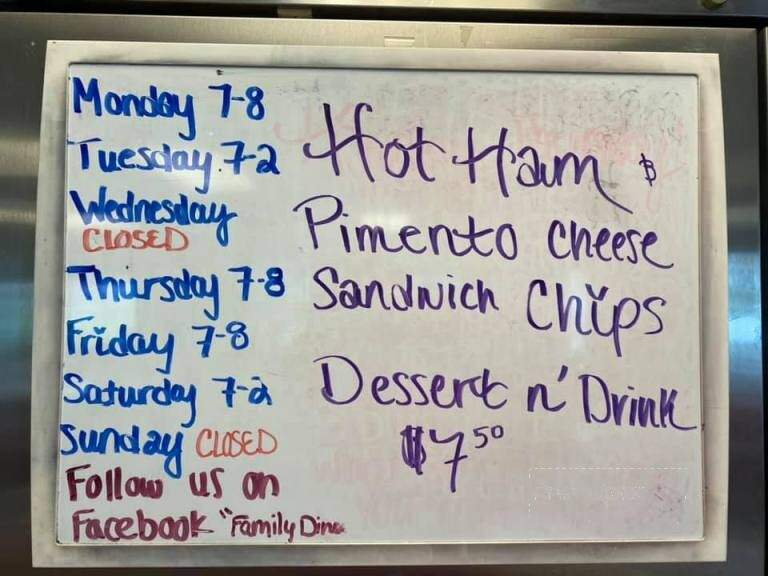 Monday 7-8
Tuesday 7-2
Wednesday
CLOSED
Thursday 7-8
Friday 7-8
Saturday 7-2
Sunday CLOSED
Follow us on
Facebook "Family Dine
Hot Ham &
Pimento Cheese
Sandwich Chips
Dessert n' Drink
$7.50